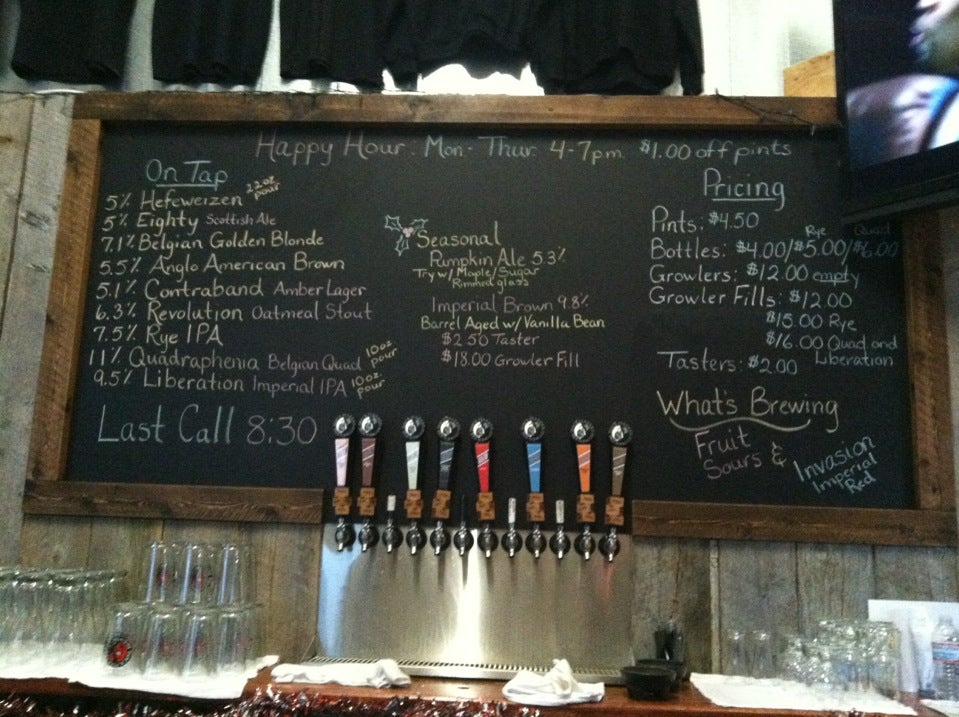 Happy Hour: Mon-Thur. 4-7pm. $1.00 off pints
On Tap
5% Hefeweizen 22oz pour
5% Eighty Scottish Ale
7.1% Belgian Golden Blonde
5.5% Anglo American Brown
5.1% Contraband Amber Lager
6.3% Revolution Oatmeal Stout
7.5% Rye IPA
11% Quadraphenia Belgian Quad 10oz pour
9.5% Liberation Imperial IPA 10oz. pour
Last Call 8:30
Seasonal
Pumpkin Ale 5.3%
Try w/ Maple/Sugar
Rimmed glass
Imperial Brown 9.8%
Barrel Aged w/ Vanilla Bean
$2.50 Taster
$18.00 Growler Fill
Pricing
Pints: $4.50
Rye Quad
Bottles: $4.00/$5.00/$6.00
Growlers: $12.00 empty
Growler Fills: $12.00
$15.00 Rye
$16.00 Quad and
Liberation
Tasters: $2.00
What's Brewing
Fruit
Sours &
Invasion
Imperial
Red